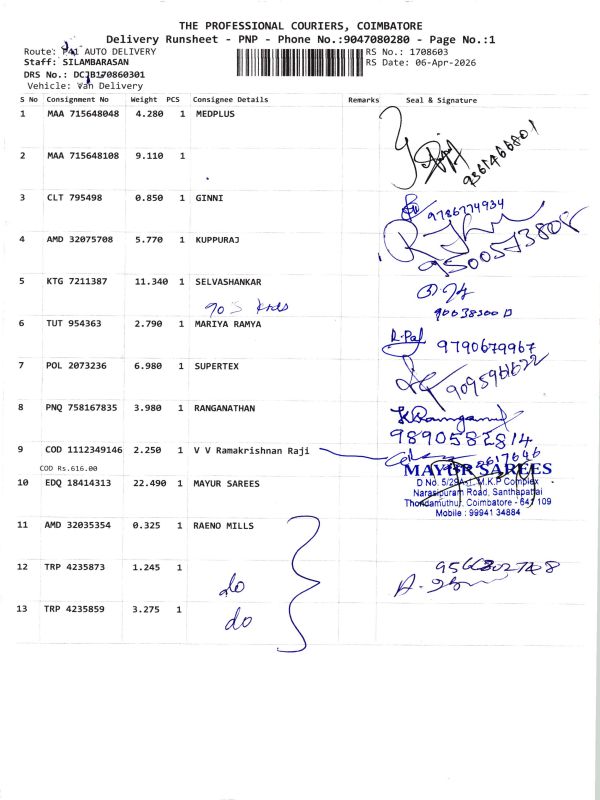 THE PROFESSIONAL COURIERS, COIMBATORE
Delivery Runsheet - PNP - Phone No.:9047080280 - Page No.:1
Route: AUTO DELIVERY
RS No.: 1708603
Staff: SILAMBARASAN
RS Date: 06-Apr-2026
DRS No.: DCJB170860301
Vehicle: Van Delivery
S No Consignment No Weight PCS Consignee Details Remarks Seal & Signature
1 MAA 715648048 4.280 1 MEDPLUS
9361466801
2 MAA 715648108 9.110 1
3 CLT 795498 0.850 1 GINNI
9786774934
4 AMD 32075708 5.770 1 KUPPURAJ
9500573808
5 KTG 7211387 11.340 1 SELVASHANKAR
6 TUT 954363 2.790 1 MARIYA RAMYA
9790679967
7 POL 2073236 6.980 1 SUPERTEX
8 PNQ 758167835 3.980 1 RANGANATHAN
9890582814
9 COD 1112349146 2.250 1 V V Ramakrishnan Raji
COD Rs.616.00
10 EDQ 18414313 22.490 1 MAYUR SAREES
MAYUR SAREES
D No. 5/29A-1, M.K.P Complex
Narasipuram Road, Santhapattai
Thondamuthur, Coimbatore - 641 109
Mobile : 99941 34884
11 AMD 32035354 0.325 1 RAENO MILLS
12 TRP 4235873 1.245 1 do
13 TRP 4235859 3.275 1 do